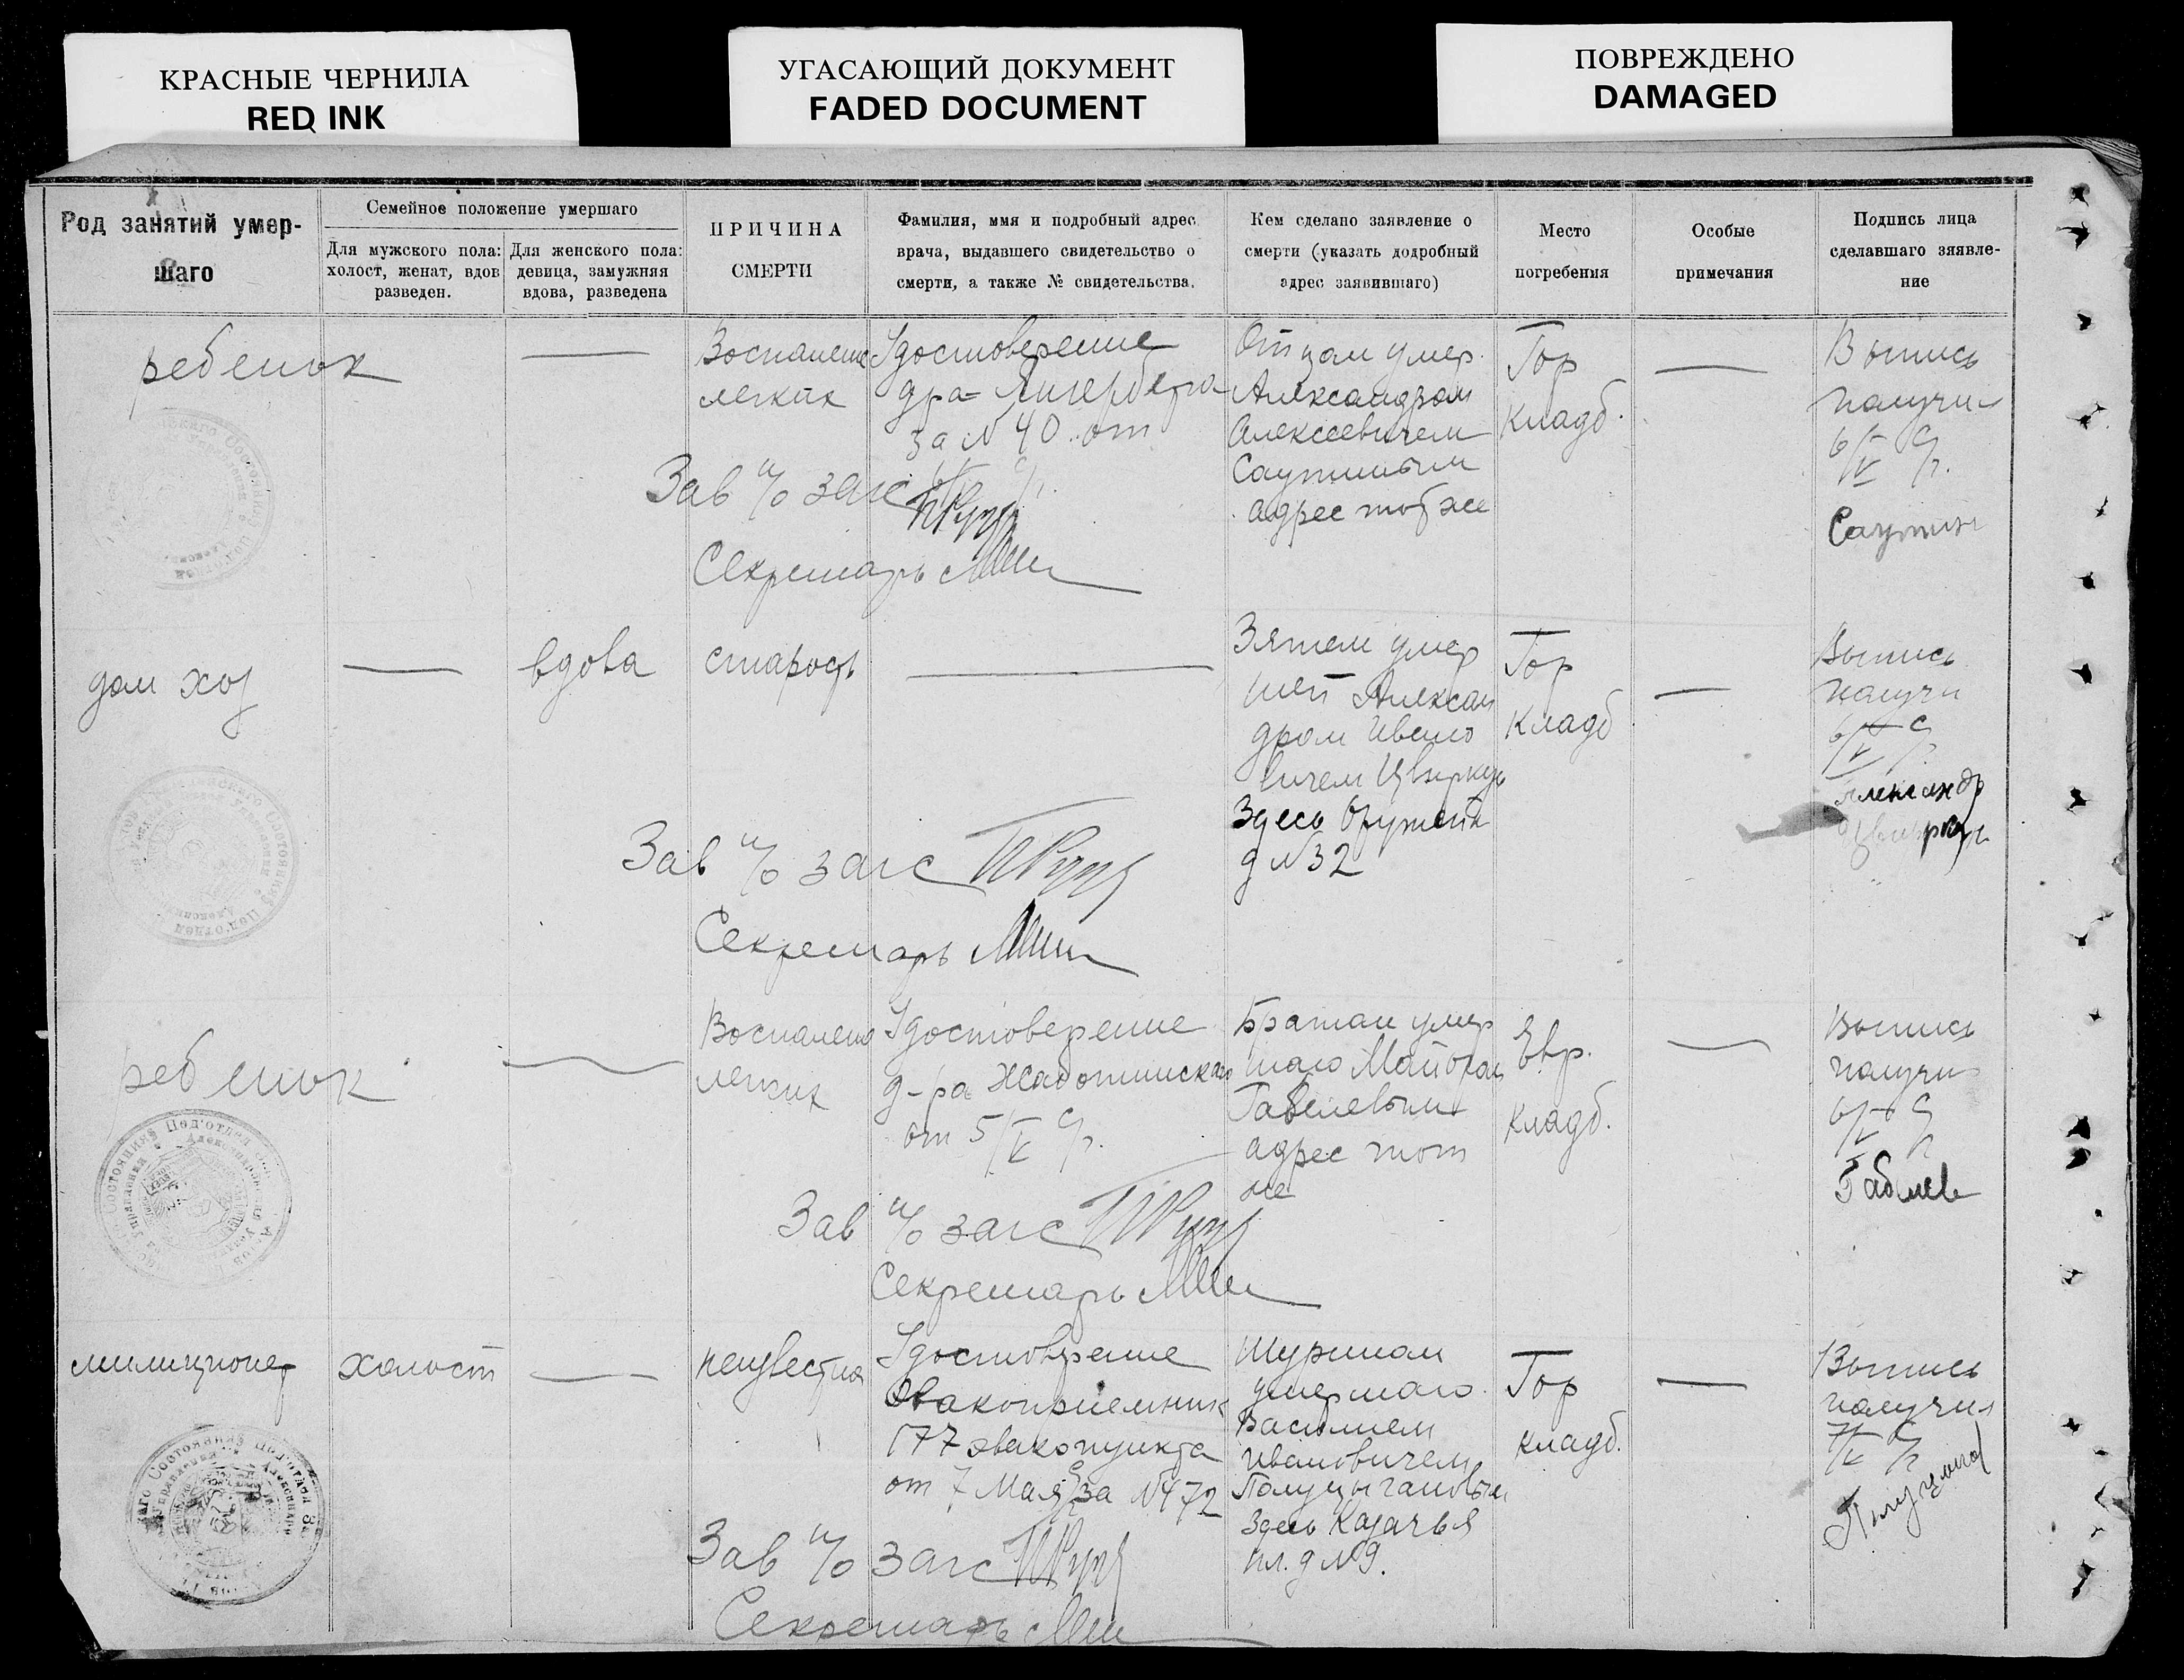 КРАСНЫЕ ЧЕРНИЛА
RED INK
УГАСАЮЩИЙ ДОКУМЕНТ
FADED DOCUMENT
ПОВРЕЖДЕНО
DAMAGED
Род занятий умер-
шаго
Семейное положение умершаго
Для мужского пола:
холост, женат, вдов
разведен.
Для женского пола:
девица, замужняя
вдова, разведена
ПРИЧИНА
СМЕРТИ
Фамилия, имя и подробный адрес
врача, выдавшего свидетельство о
смерти, а также № свидетельства.
Кем сделано заявление о
смерти (указать додробный
адрес заявившаго)
Место
погребения
Особые
примечания
Подпись лица
сделавшаго зяявле-
ние
ребенок
Воспаление
легких
Удостоверение
д-ра
за N 40 от
Отцом умер.
Александром
Алексеевичем
Саутиным
адрес тот же
Гор
кладб.
Выпись
получил
6/V с/г.
Саутин
Зав п/о загс
Секретарь
дом хоз
вдова
старость
Зятем умер
шей Алексан
дром Ивано
вичем Цвиркун
Здесь Оружейн
д N 32
Гор
кладб
Выпись
получил
6/V с/г
Александр
Цвиркун
Зав п/о загс
Секретарь
ребенок
Воспаление
легких
Удостоверение
д-ра Жаботинского
от 5/V с/г.
Братом умер
шаго Майором
Габелевым
адрес тот
же
Евр.
кладб.
Выпись
получил
6/V с/г
Зав п/о загс
Секретарь
милиционер
холост
неизвестна
Удостоверение
эвакоприемник
177 эвакопункта
от 7 Мая с/г за N 472
Шурином
умершаго
Василием
Ивановичем
Полуцыгановым
Здесь Казачья
пл. д N 9.
Гор
кладб.
Выпись
получил
7/V с/г
Зав п/о загс
Секретарь